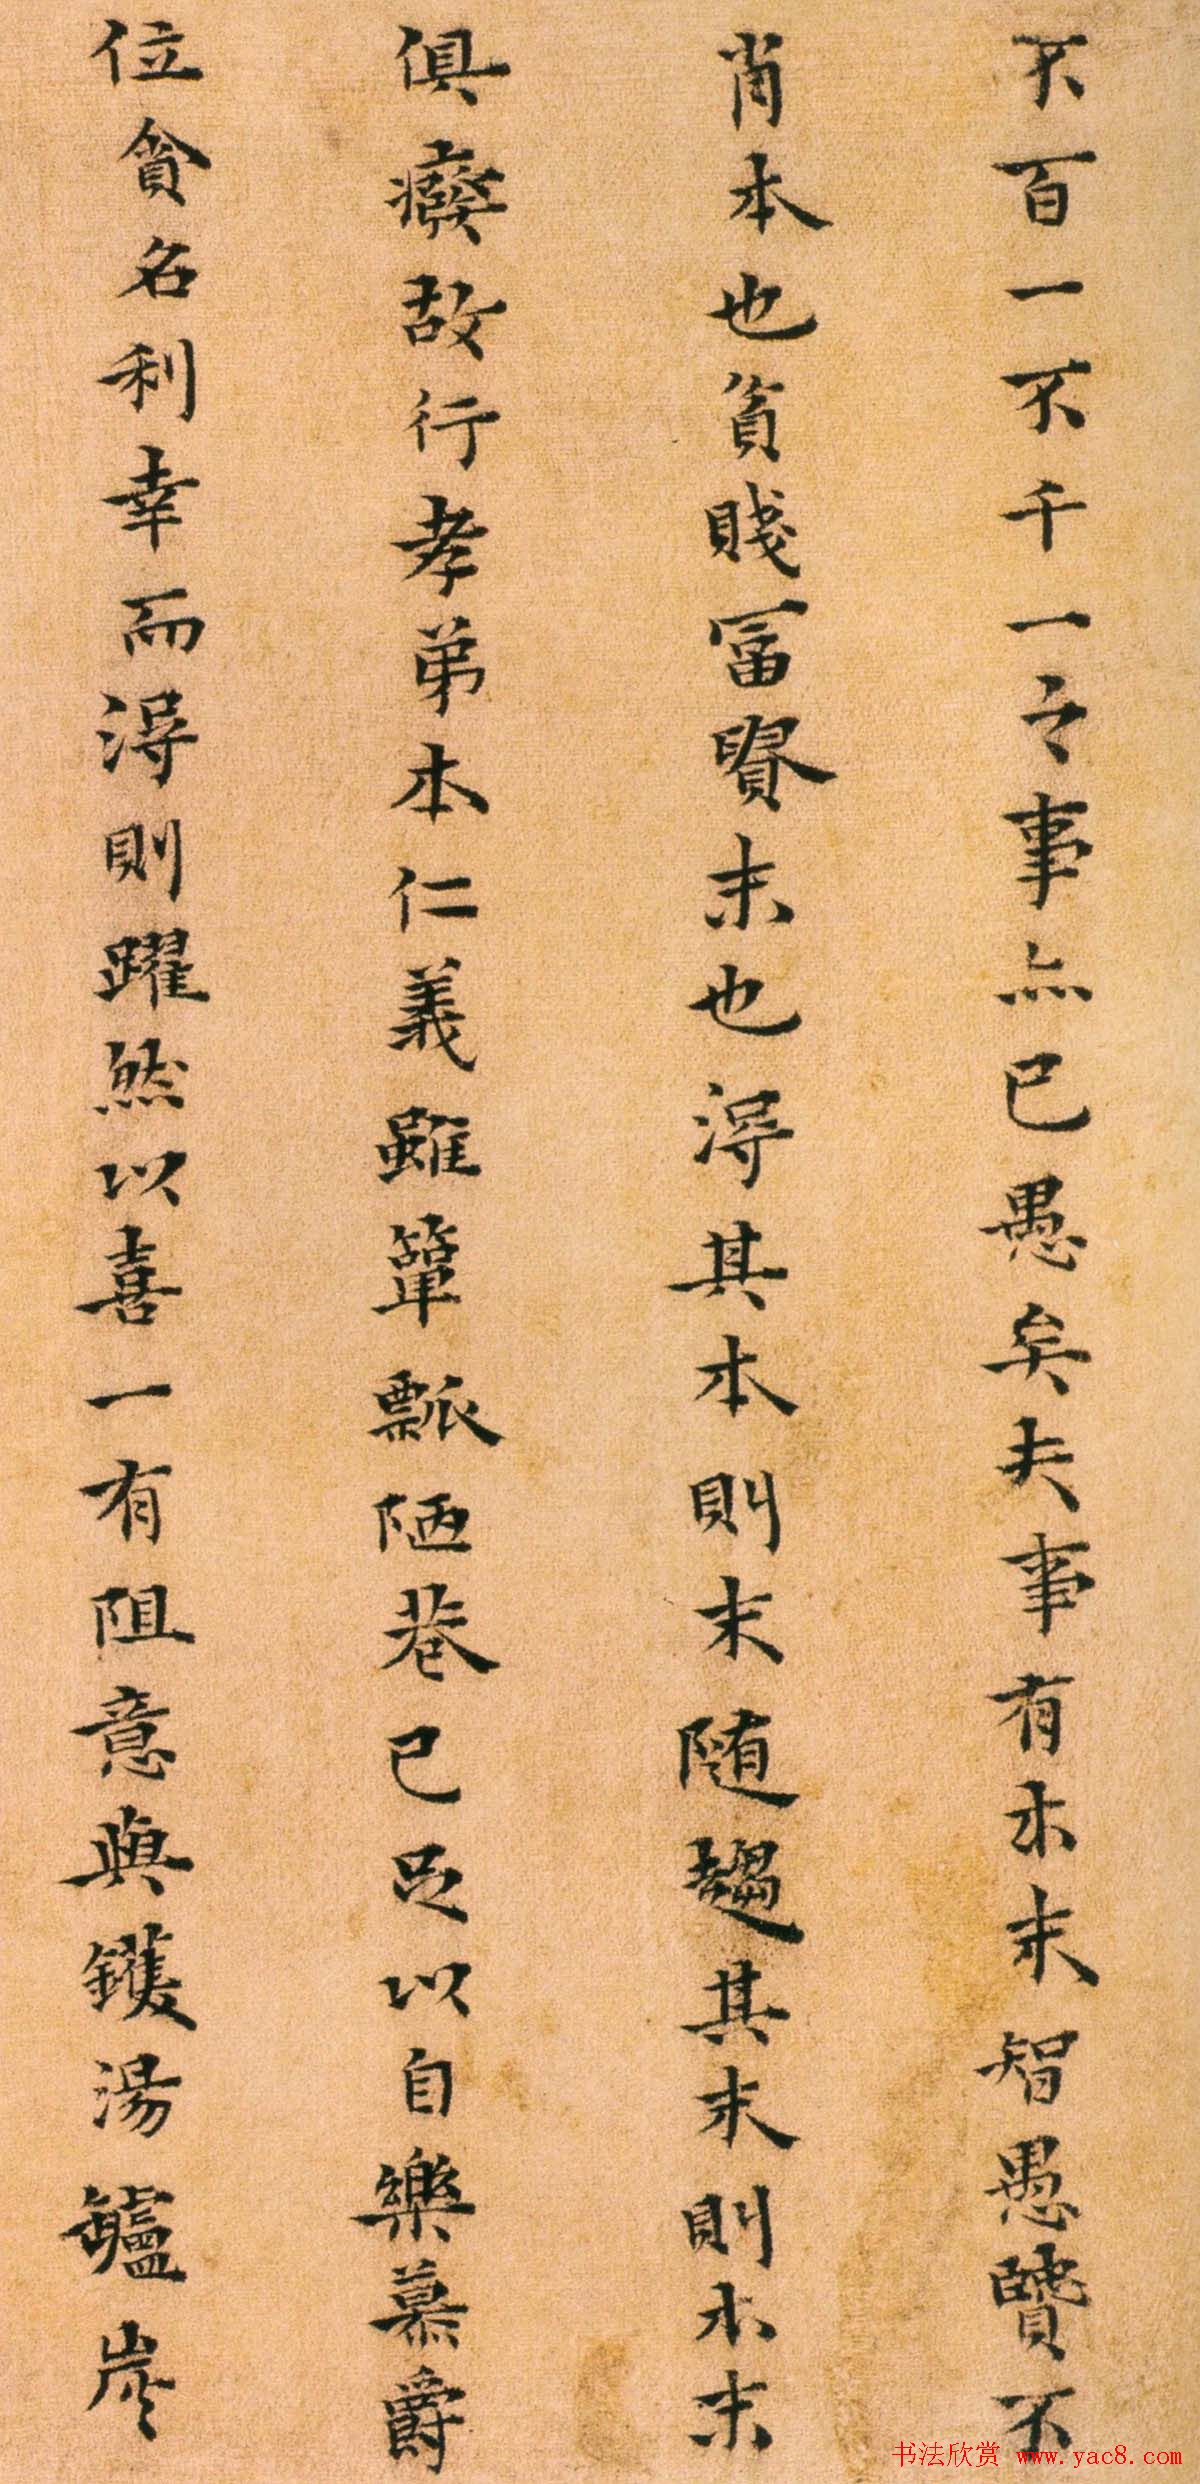 不百一不千一之事亦已愚矣夫事有本末智愚賢不
肖本也貧賤冨貴末也得其本則末隨趨其末則本末
俱癈故行孝弟本仁義雖簞瓢陋巷已足以自樂慕爵
位貪名利幸而得則躍然以喜一有阻意與鑊湯鑪炭
书法欣赏 www.yac8.com